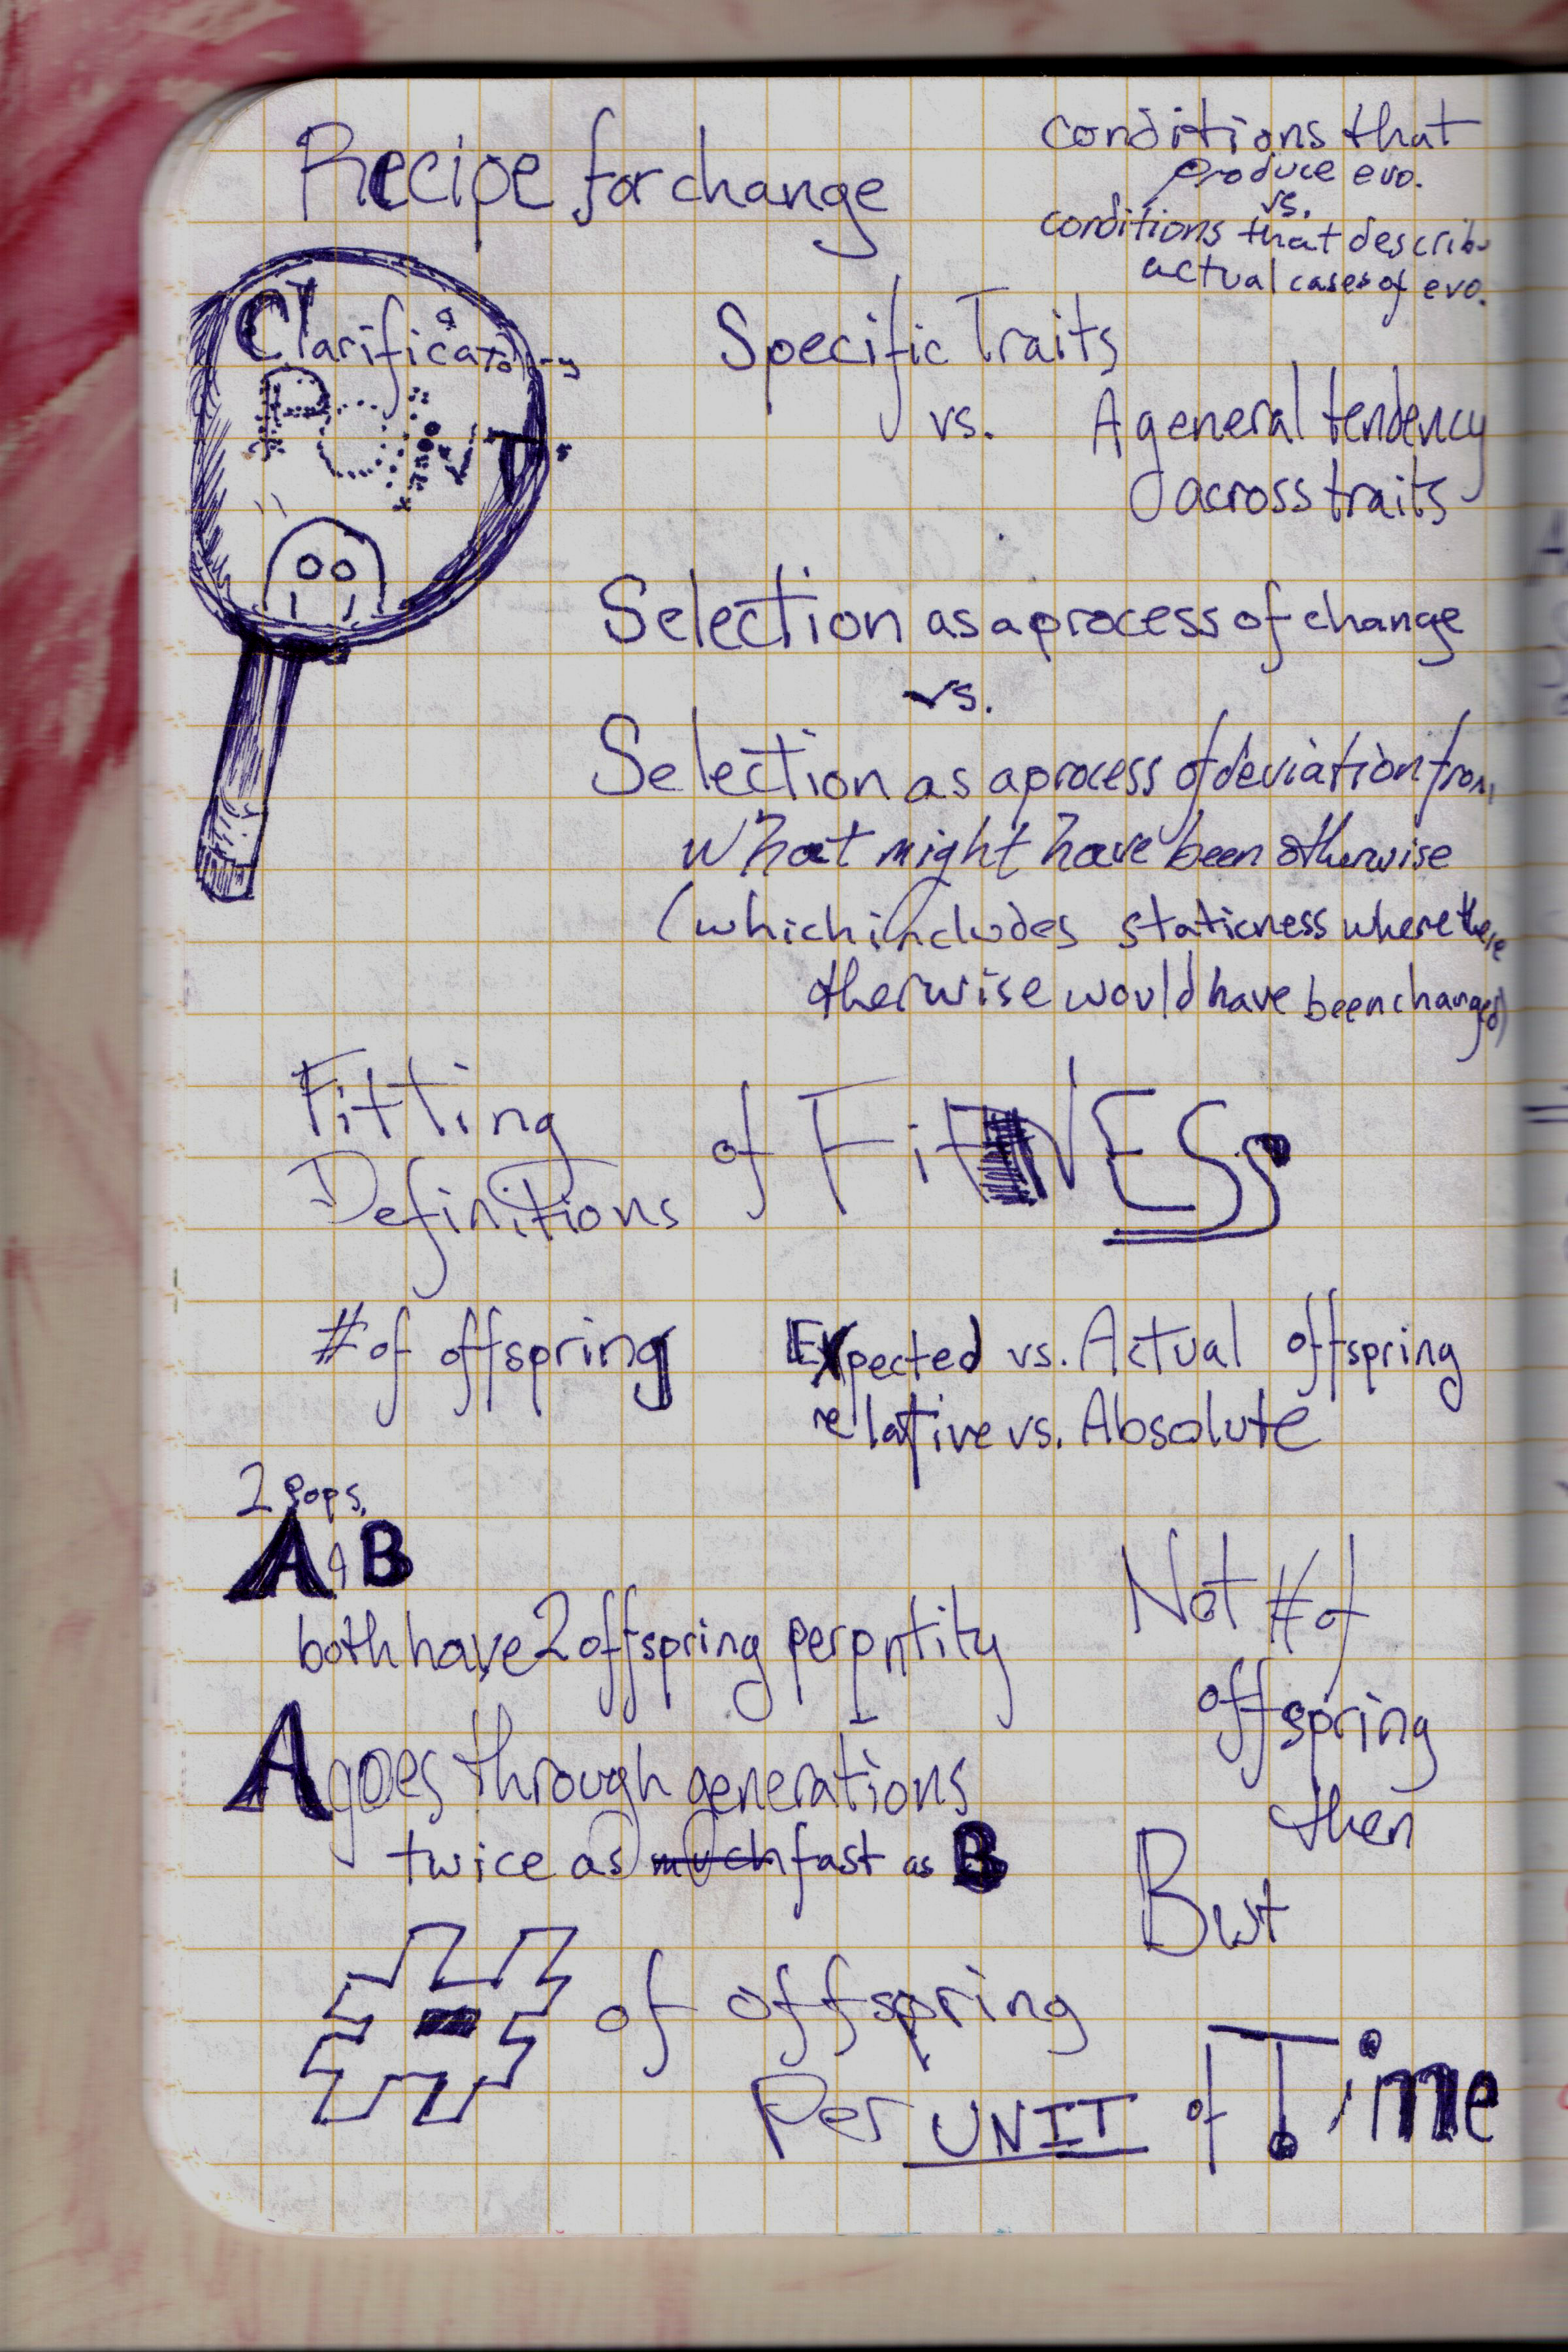 Recipe for change
conditions that
produce evo.
vs.
conditions that describe
actual cases of evo.
Clarificatory
POINT
Specific Traits
vs. A general tendency
across traits
Selection as a process of change
vs.
Selection as a process of deviation from
what might have been otherwise
(which includes staticness where there
otherwise would have been changed)
Fitting
Definitions
of FitNESS
# of offspring
Expected vs. Actual offspring
relative vs. Absolute
2 Pops.
A & B
both have 2 offspring per entity
A goes through generations
twice as much fast as B
Not # of
offspring
then
But
# of offspring
Per UNIT of Time